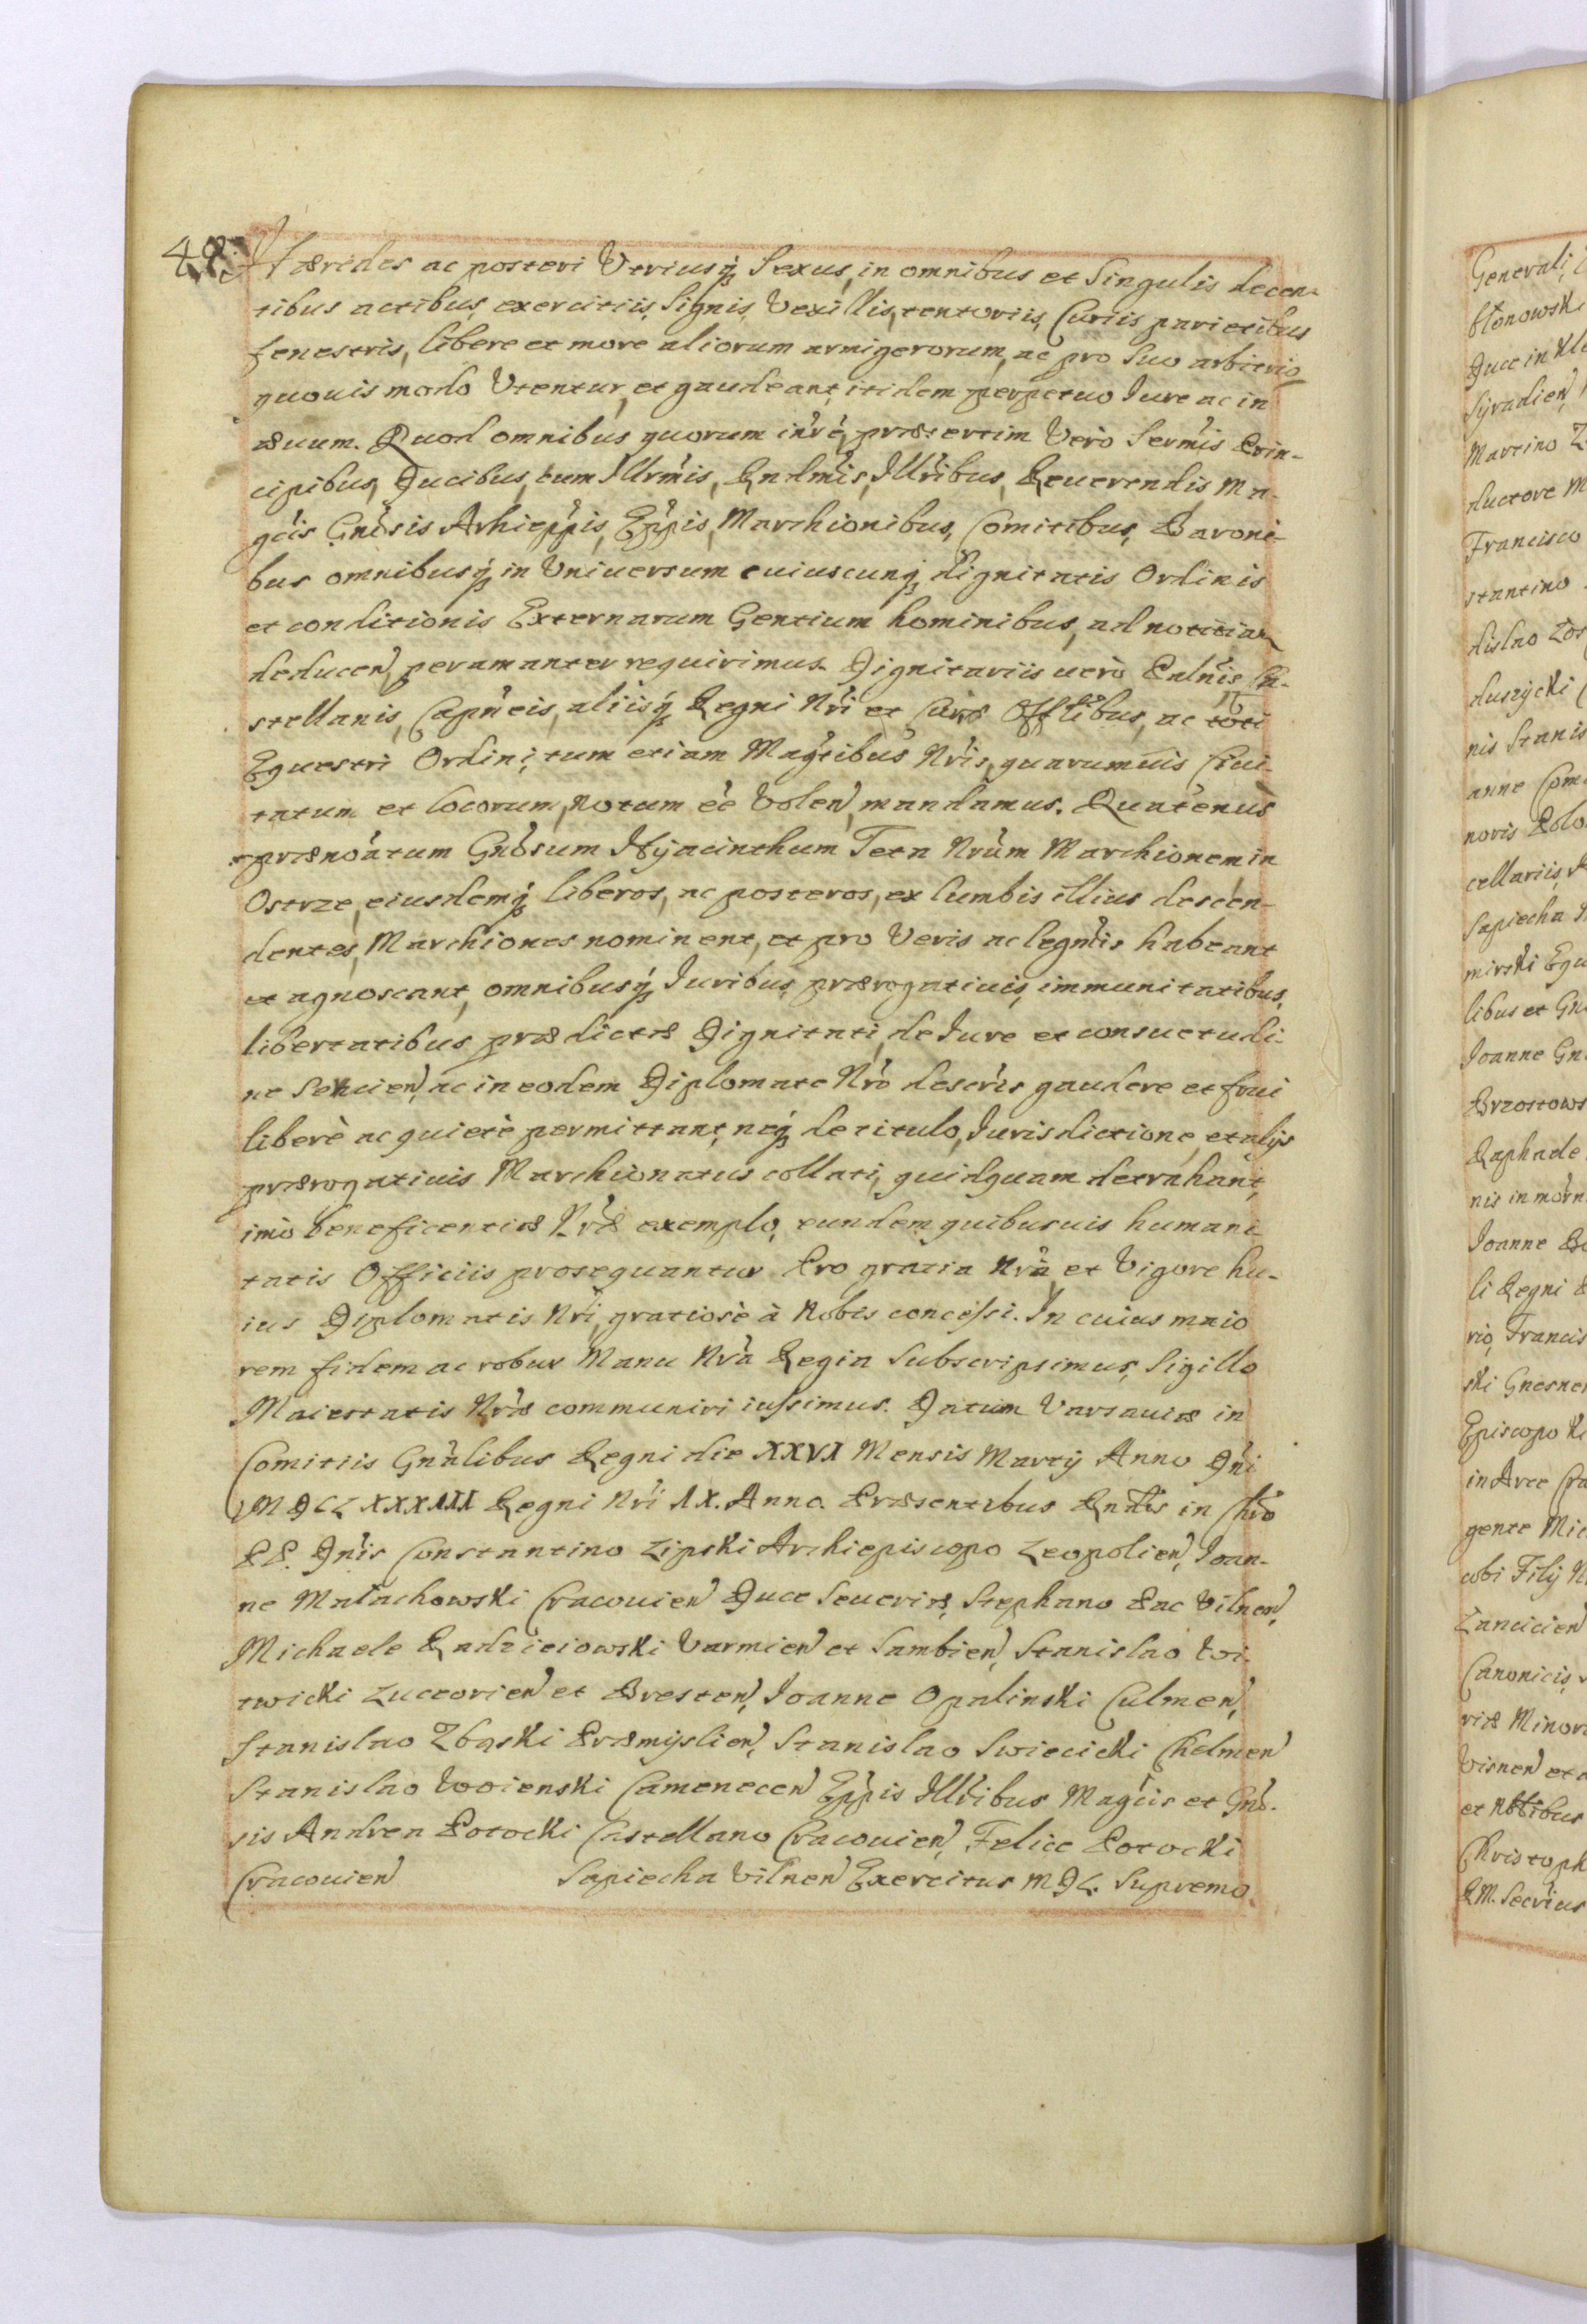 48.
Hæredes ac posteri Vtriusq́ Sexus, in omnibus et Singulis decen-
tibus actibus, exercitiis, Signis, Vexillis, tentoriis, Curiis parietibus
fenestris, libere et more aliorum armigerorum, ac pro Suo arbitrio
quouis modo Vtentur, et gaudeant, itidem perpetuo Iure ac in
æuum. Quod omnibus quorum inrẻ, præsertim Vero Sermis Prin-
cipibus, Ducibus, tum Illrmis, Rndmis, Illribus, Reuerendis Ma-
gcis Gnosis Arhieppis, Eppis, Marchionibus, Comitibus, Baroni-
bus omnibusq́ in Vniuersum cuiuscunq́ dignitatis Ordinis
et conditionis Externarum Gentium hominibus, ad notitiam
deducen, peramanter requirimus. Dignitariis uero Palnis Ca-
stellanis, Capneis, aliisq́ Regni Nri et Curæ Offlibus, ac toti
Equestri Ordini, tum etiam Magtibus Nris, quarumuis Ciui-
tatum et locorum, Notum ee Volen, mandamus. Quatenus
prænoatum Gnosum Hyacinthum Teta Nrum Marchionem in
Ostrze, eiusdemq́ liberos, ac posteros, ex lumbis illius descen-
dentes, Marchiones nominent, et pro Veris ac legmis habeant
et agnoscant, omnibusq́ Iuribus, prærogatiuis, immunitatibus,
libertatibus prædictæ Dignitati, de Iure et consuetudi-
ne Seruien, ac in eodem Diplomate Nro descris gaudere et frui
liberè ac quietè permittant, neq́ de titulo, Iurisdictione, et alijs
prærogatiuis Marchionatus collati, quidquam detrahant,
imò beneficentiæ Nræ exemplo, eundem quibusuis humani-
tatis Officiis prosequantur Pro gratia Nra, et Vigore hu-
ius Diplomatis Nri, gratiosè à Nobis concessi. In cuius maio
rem fidem ac robur Manu Nra Regia Subscripsimus, Sigillo
Maiestatis Nræ communiri iussimus. Datum Varsauiæ in
Comitiis Gnalibus Regni die XXVI Mensis Martij Anno Dni
MDCLXXXIII Regni Nri IX. Anno. Præsentibus Rndis in Chro
PP. Dnis Constantino Lipski Archiepiscopo Leopolien, Ioan-
ne Małachowski Cracouien Duce Seueriæ, Stephano Pac Vilnen,
Michaele Radzieiowski Varmien et Sambien, Stanislao Wi-
twicki Luceorien et Bresten, Ioanne Opalinski Culmen,
Stanislao Zbąski Præmyslien, Stanislao Swiecicki Chelmen
Stanislao Woienski Camenecen Eppis Illribus Magcis et Gno-
sis Andrea Potocki Castellano Cracouien, Felice Potocki
Cracouien Sapiecha Vilnen Exercitus M D L. Supremo
Generali,
błonowski
Duce in
Syradien
Martino Z
ductore M
Francisco
stantino
dislao Łos
duszycki (
nis Stanis
anne Com
noris Polo
cellariis,
Sapiecha
mirski Equ
libus et Gn
Ioanne Gn
Brzostows
Raphaele
nis in
Ioanne
li Regni
rio, Francis
ski Gnesne
Episcopo Ki
in Arce Cra
gente Mic
cobi Filij N
Lancicien
Canonicis,
riæ Minor
Visnen et
et Nobibus
Christoph
R M. Secrius